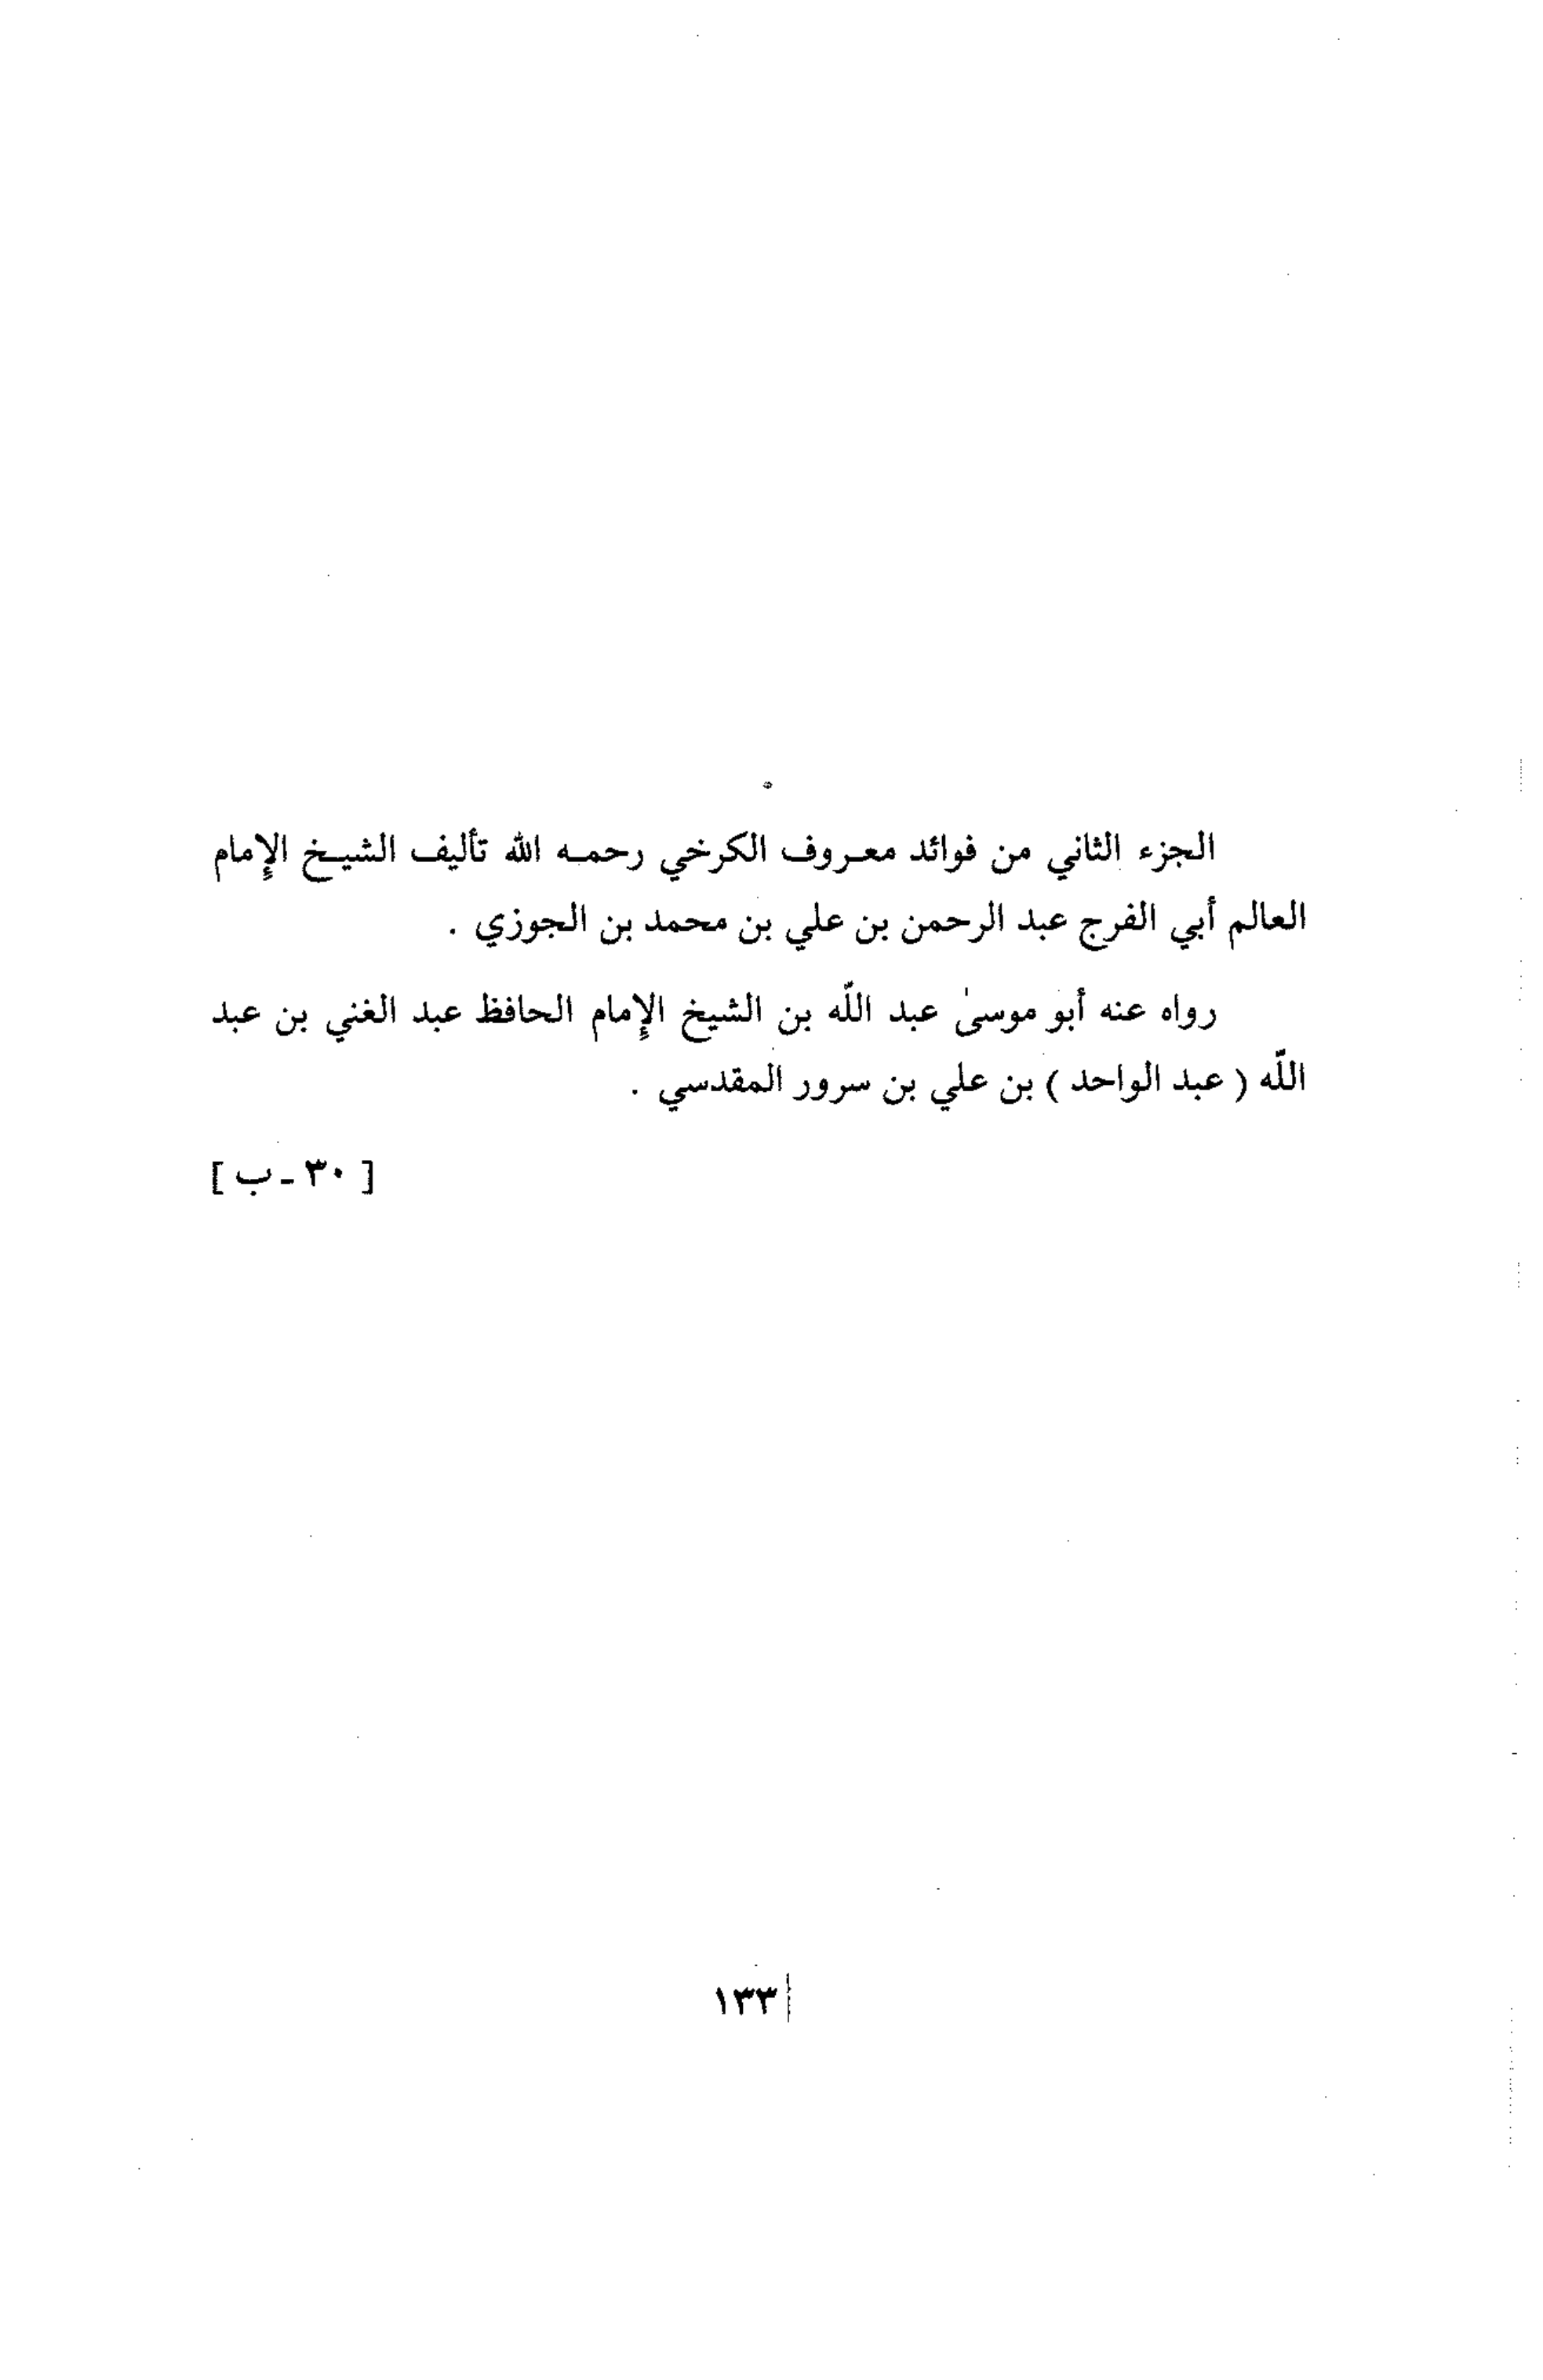 الجزء الثاني من فوائد معروف الكرخي رحمه الله تأليف الشيخ الإمام
العالم أبي الفرج عبد الرحمن بن علي بن محمد بن الجوزي .
رواه عنه أبو موسىٰ عبد اللّه بن الشيخ الإمام الحافظ عبد الغني بن عبد
اللّه ( عبد الواحد ) بن علي بن سرور المقدسي .
[ ٣٠ - ب ]
١٣٣